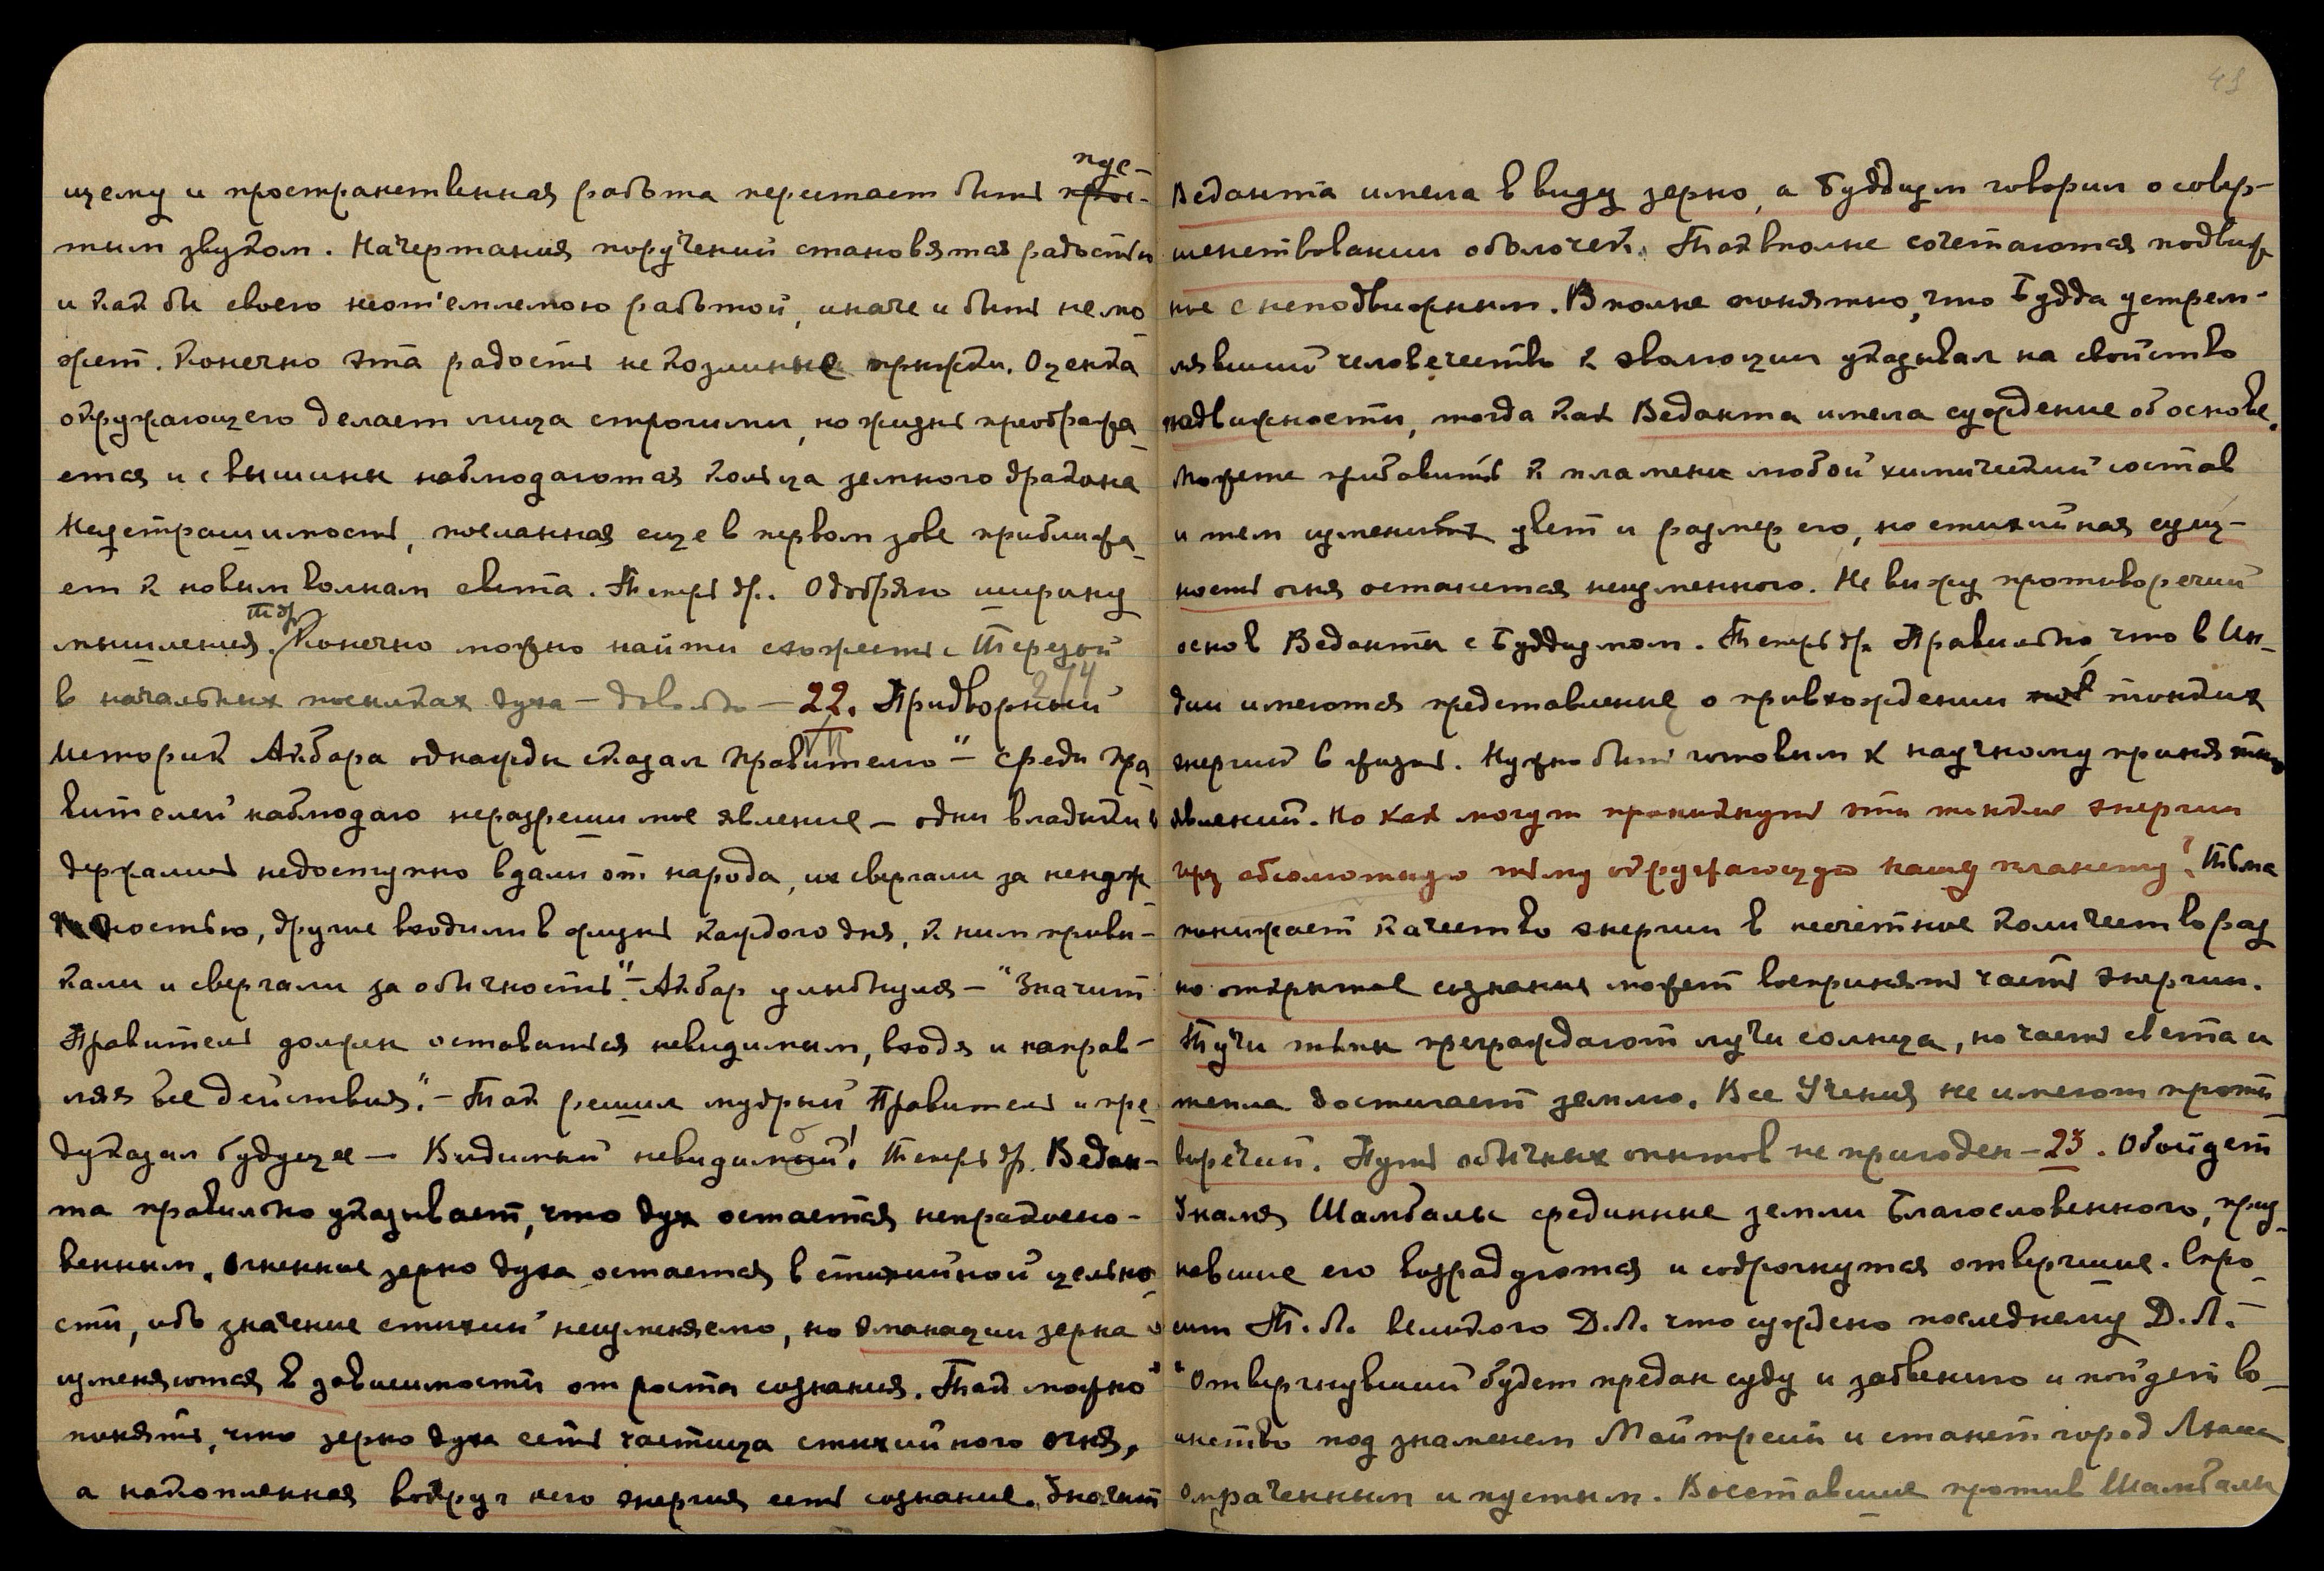 пус-
щему и пространственная работа перестает быть прос-
тым звуком. Начертания поручений становятся радостью
и как бы своего неотъемлемою работой, иначе и быть не мо
жет. Конечно эта радость не козлиные прыжки. Оценка
окружающего делает лица строгими, но жизнь преобража
ется и с вышины наблюдаются кольца земного дракона
Неустрашимость, посланная еще в первом зове приближа
ет к новым волнам света. Теперь др. Одобряю ширину
т др
мышления. Конечно можно найти схожесть с Терезой
в начальных посылках духа – довольно – 22. Придворный
VII
историк Акбара однажды сказал Правителю "– Среди Пра
вителей наблюдаю неразрешимое явление – одни владыки
держались недоступно вдали от народа, их свергали за ненуж
ностью, другие входили в жизнь каждого дня, к ним привы-
кали и свергали за обычность". – Акбар улыбнулся – "Значит
Правитель должен оставаться невидимым, входя и направ-
ляя все действия". – Так решил мудрый Правитель и пре
дуказал будущее – Видимый невидимый! Теперь др. Ведан-
та правильно указывает, что дух остается неприкосно-
венным. Огненное зерно духа остается в стихийной цельно
сти, ибо значение стихий неизменяемо, но эманации зерна
изменяются в зависимости от роста сознания. Так можно
понять, что зерно духа есть частица стихийного огня,
а накопленная вокруг него энергия есть сознание. Значит
49
Веданта имела в виду зерно, а Буддизм говорил о совер-
шенствовании оболочек. Так вполне сочетаются подвиж
ное с неподвижным. Вполне понятно, что Будда устрем-
лявший человечество к эволюции указывал на свойство
подвижности, тогда как Веданта имела суждение об основе.
Можете прибавить к пламени любой химический состав
и тем изменить цвет и размер его, но стихийная сущ-
ность огня останется неизменною. Не вижу противоречий
основ Веданты с Буддизмом. Теперь др. Правильно, что в Ин-
дии имеются представление о привхождении тонких
энергий в жизнь. Нужно быть готовым к научному принятию
явлений. Но как могут проникнуть эти тонкие энергии
чрез абсолютную тьму окружающую нашу планету? Тьма
понижает качество энергии в несчетное количество раз
но открытое сознание может воспринять часть энергии.
Тучи тьмы преграждают лучи солнца, но часть света и
тепла достигает землю. Все Учения не имеют проти
воречий. Путь обычных опытов не пригоден – 23. Обойдет
Знамя Шамбалы срединные земли Благословенного, приз
навшие его возрадуются и содрогнутся отвергшие. Спро
сит Т.Л. великого Д.Л. что суждено последнему Д.Л. –
"Отвергнувший будет предан суду и забвению и пойдет во-
инство под знаменем Майтрейи и станет город Лхаса
омраченным и пустым. Восставшие против Шамбалы